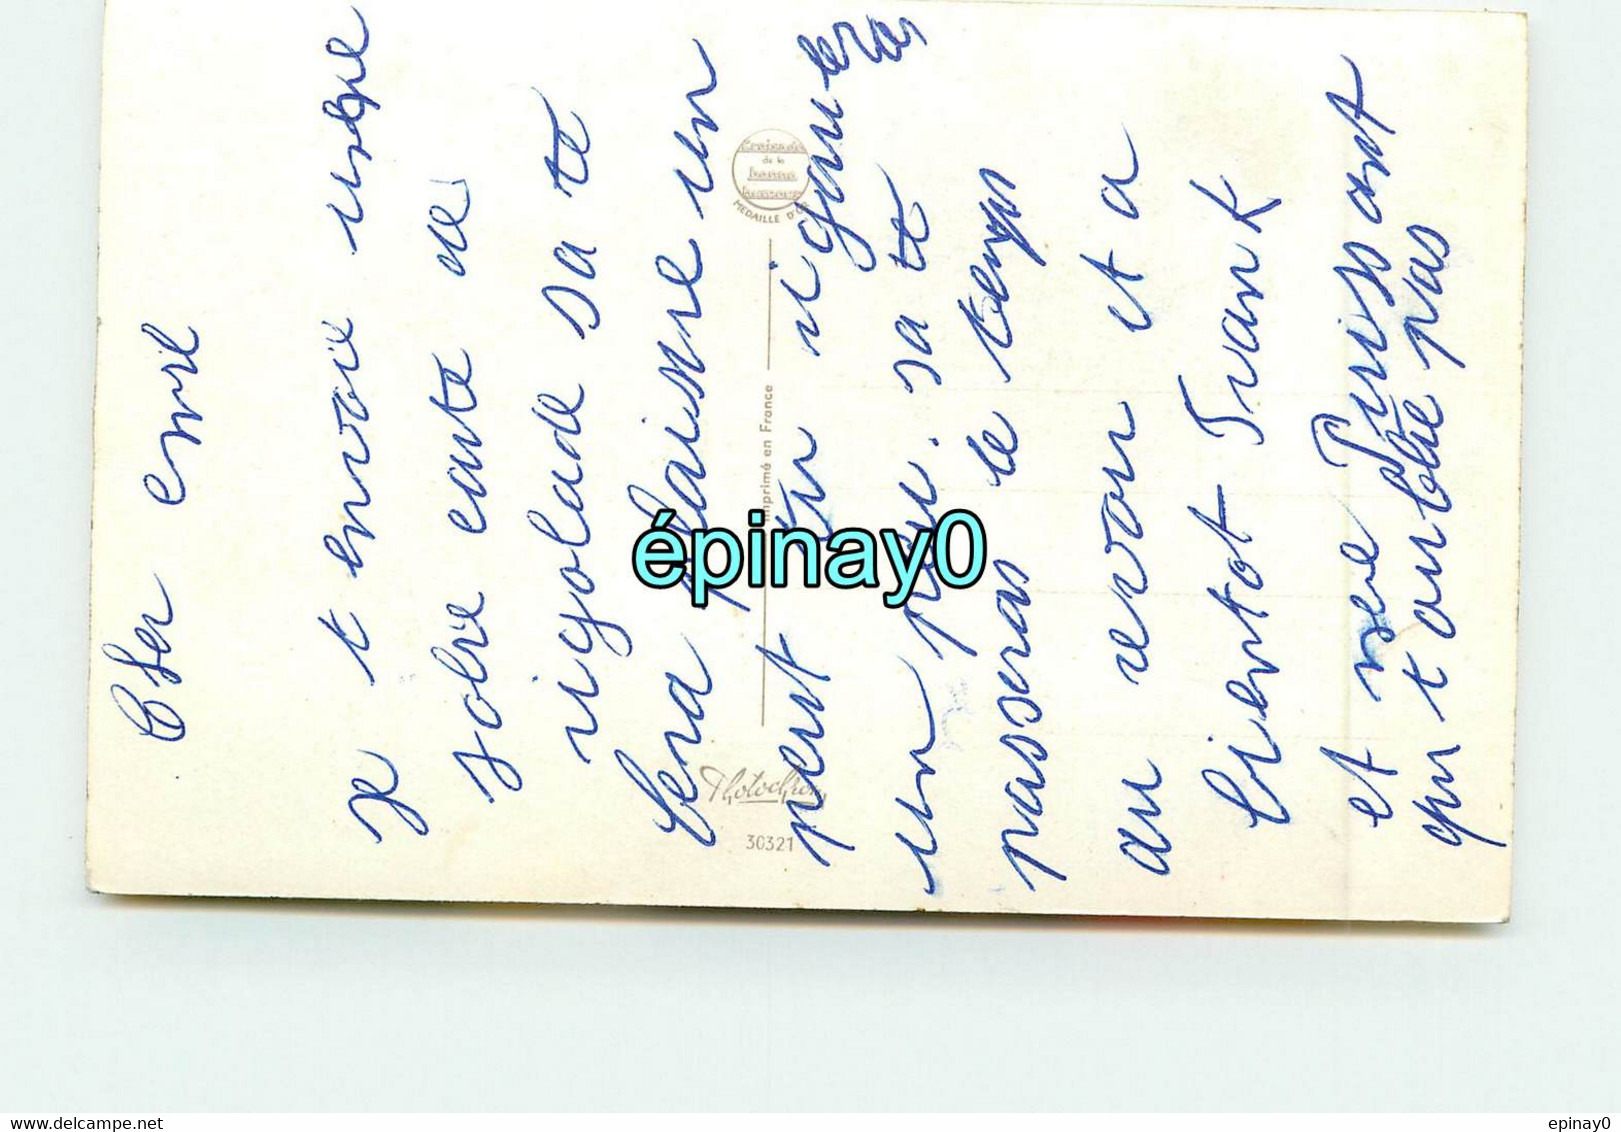 Cher emil
je t envoie unepe
jolie carte de
rigolade sa te
fera plaissire un
peut tu rigouleras
un peu. sa te
passeras le temps
au revoir et a
bientot Frank
et rene Puissant
qui t oublie pas
Croisade
de la
bonne
humeur
MEDAILLE D'OR
Imprimé en France
Photochrom
30321
épinay0
delcampe.net
epinay0